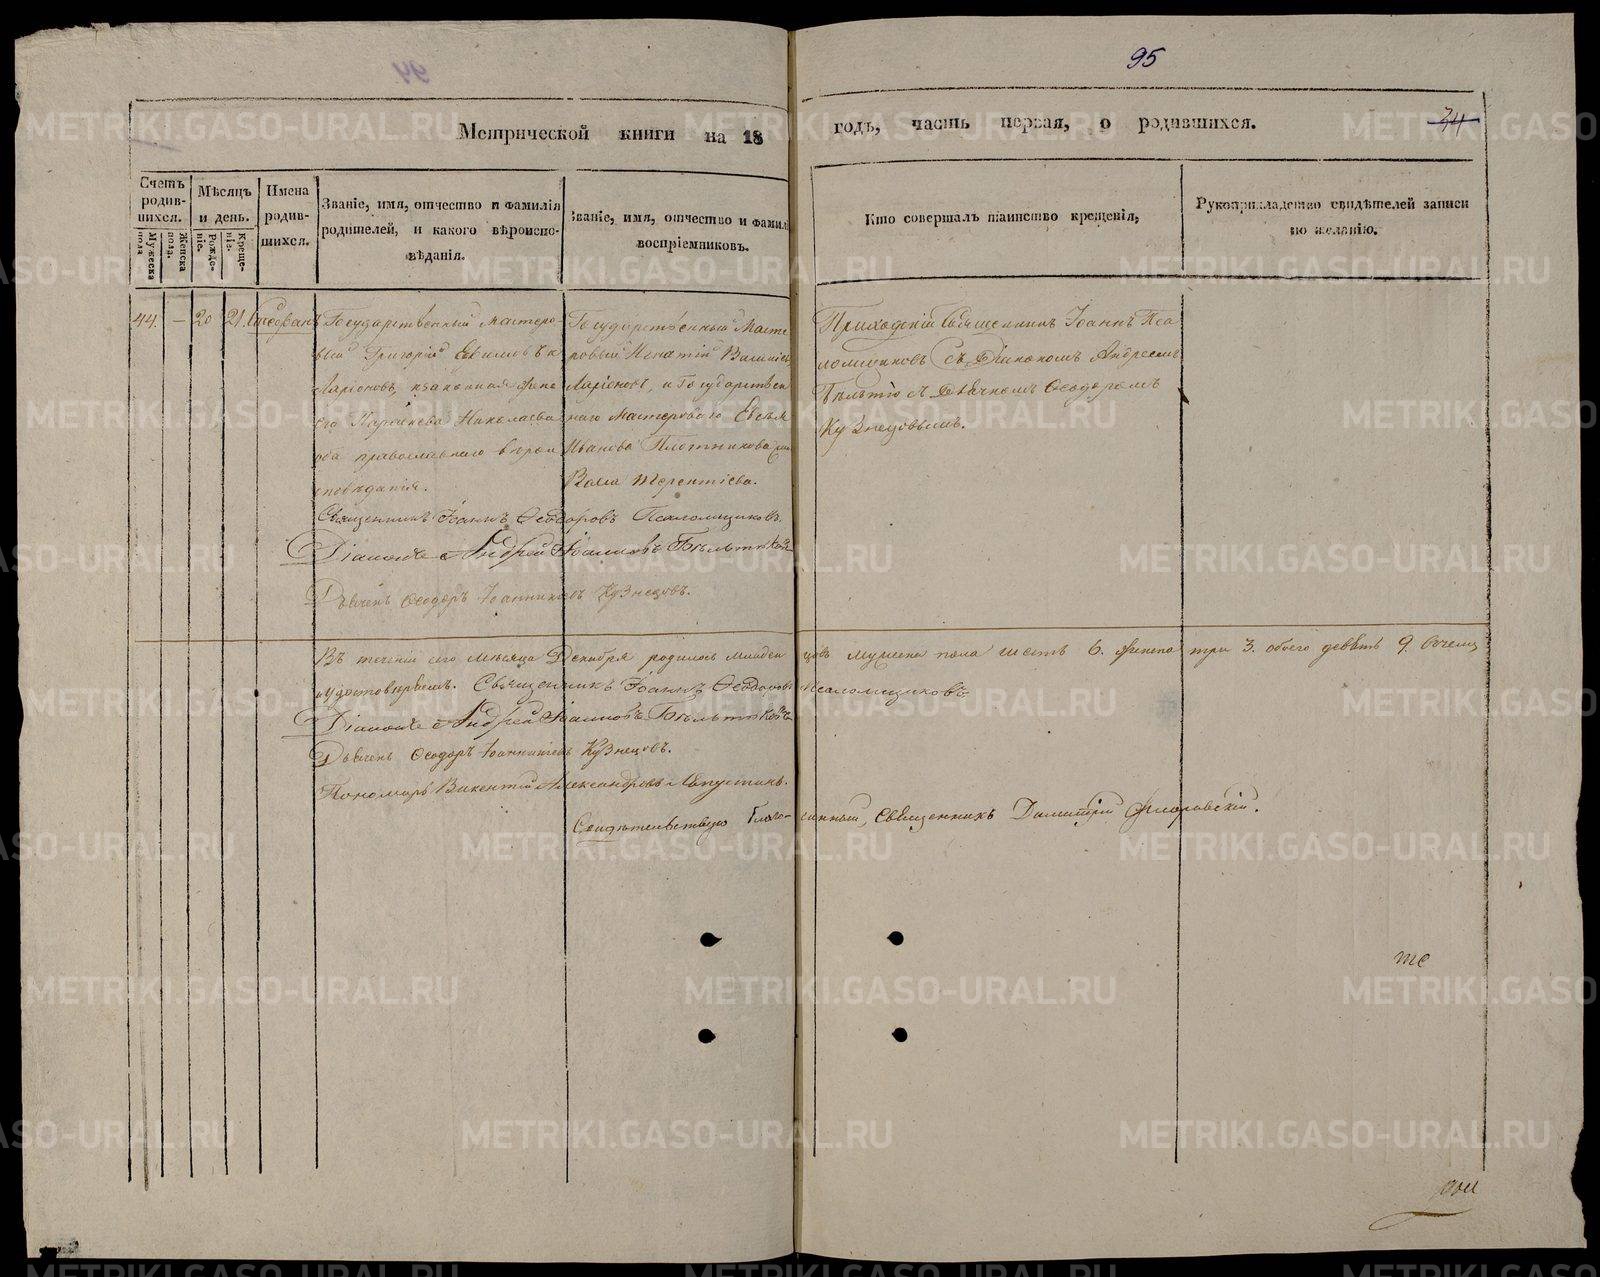 95
34
Метрической книги на 18 годъ, часть первая, о родившихся.
Счетъ родившихся.
Мужеска пола.
Женска пола.
Мѣсяцъ и день.
Рожденіе.
Крещеніе.
Имена родившихся.
Званіе, имя, отчество и фамилія родителей, и какого вѣроисповѣданія.
Званіе, имя, отчество и фамилі воспріемниковъ.
Кто совершалъ таинство крещенія,
Рукоприкладство свидѣтелей записи по желанію.
44. — 20 21. Стефанъ
Государственный мастеро-
вый Григорій
Ларіоновъ, и законная жена
его Параскева Николаева
оба православнаго вѣрои
сповѣданія.
Государственный Масте
ровый Игнатій
Ларіоновъ, и Государствен
наго Мастероваго
Иванова Плотникова
Терентіева.
Приходскій Священникъ Іоаннъ Пса
ломщиковъ Съ Діакономъ Андреемъ
съ Дьячкомъ Ѳеодоромъ
Кузнецовымъ.
Священникъ Іоаннъ Ѳеодоровъ Псаломщиковъ.
Діаконъ Андрей Іоанновъ
Дьячекъ Ѳеодоръ Іоанникіевъ Кузнецовъ.
Въ теченіи сего мѣсяца Декабря родилось младен цовъ мужеска пола шесть 6. женска три 3. обоего девять 9. О чемъ
и удостовѣряемъ. Священникъ Іоаннъ Ѳеодоровъ Псаломщиковъ
Діаконъ Андрей Іоанновъ
Дьячекъ Ѳеодоръ Іоанникіевъ Кузнецовъ.
Пономарь Викентій Александровъ
Свидѣтельствую Благо- чинный, Священникъ Димитрій Флоровскій.
METRIKI.GASO-URAL.RU